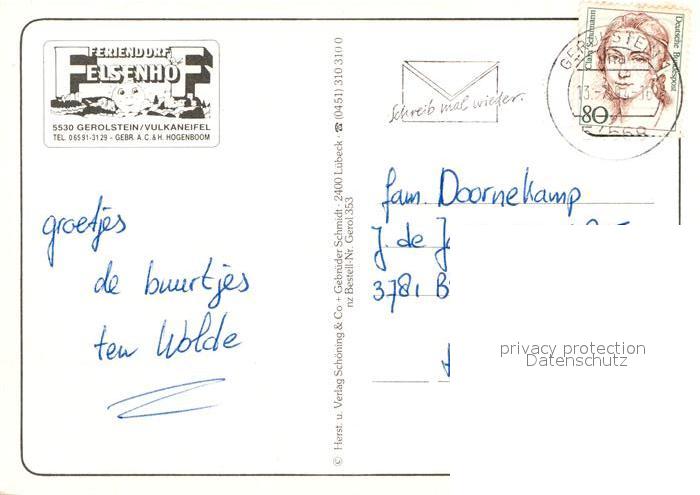 FERIENDORF
FELSENHOF
5530 GEROLSTEIN/VULKANEIFEL
TEL. 06591-3129 - GEBR. A.C. & H. HOGENBOOM
Schreib mal wieder.
Clara Schumann
Deutsche Bundespost
80
GEROLSTEIN
54568
© Herst. u. Verlag Schöning & Co + Gebrüder Schmidt · 2400 Lübeck · ☎ (0451) 310 310 0
nz Bestell-Nr. Gerol 353
groetjes
de buurtjes
ten Wolde
fam. Doornekamp
J. de
3781 B
privacy protection
Datenschutz